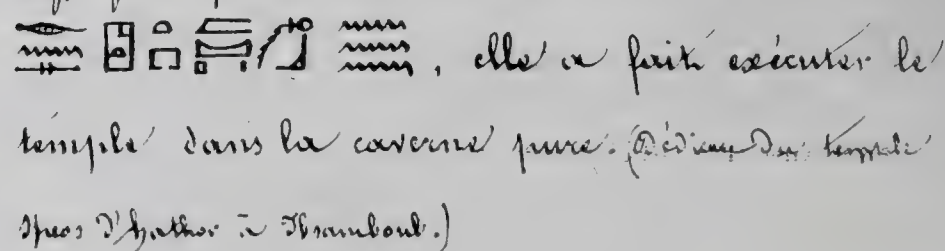 𓁹𓈖𓊃 𓈖𓈖𓈖, elle a fait exécuter le
temple dans la caverne pure. (Dédicace du temple
Speos d'Hathor à Ibsamboul.)